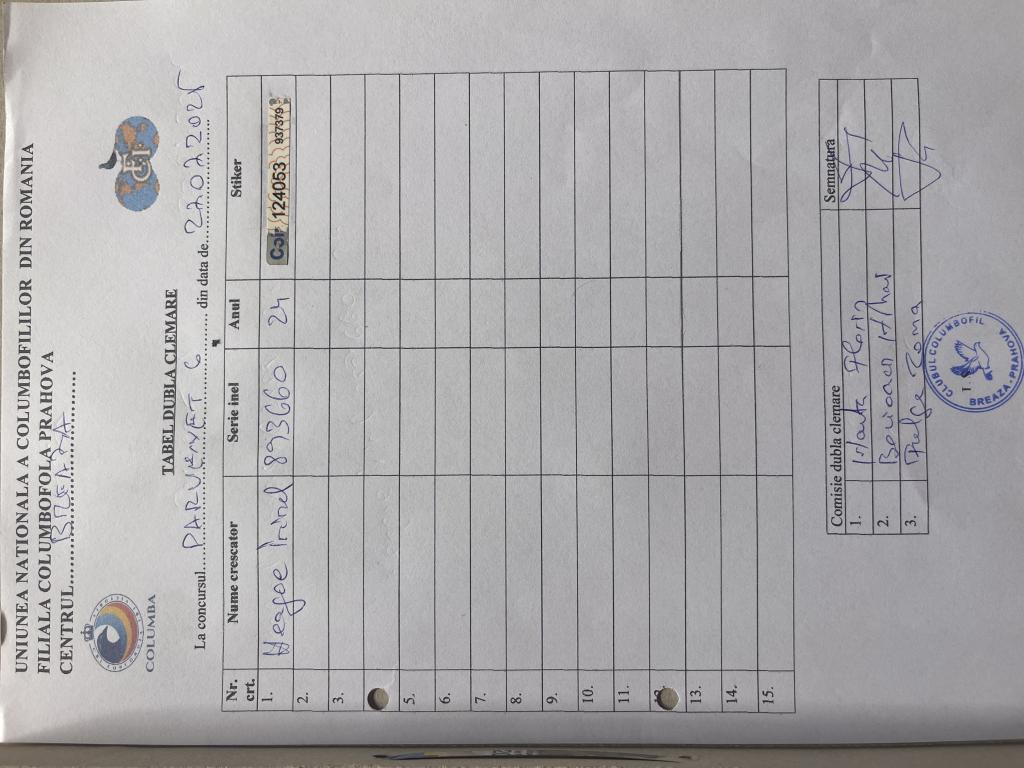 UNIUNEA NATIONALA A COLUMBOFILILOR DIN ROMANIA
FILIALA COLUMBOFOLA PRAHOVA
CENTRUL....BREAZA....
COLUMBA
FCI
TABEL DUBLA CLEMARE
La concursul....PARVENET 6.... din data de....27072025....
Nr. crt. Nume crescator Serie inel Anul Stiker
1. Neagoe 893660 24 124053 937379
2.
3.
5.
6.
7.
8.
9.
10.
11.
13.
14.
15.
Comisie dubla clemare Semnatura
1. Florin
2. Mihai
3. Toma
CLUBUL COLUMBOFIL
BREAZA - PRAHOVA
1